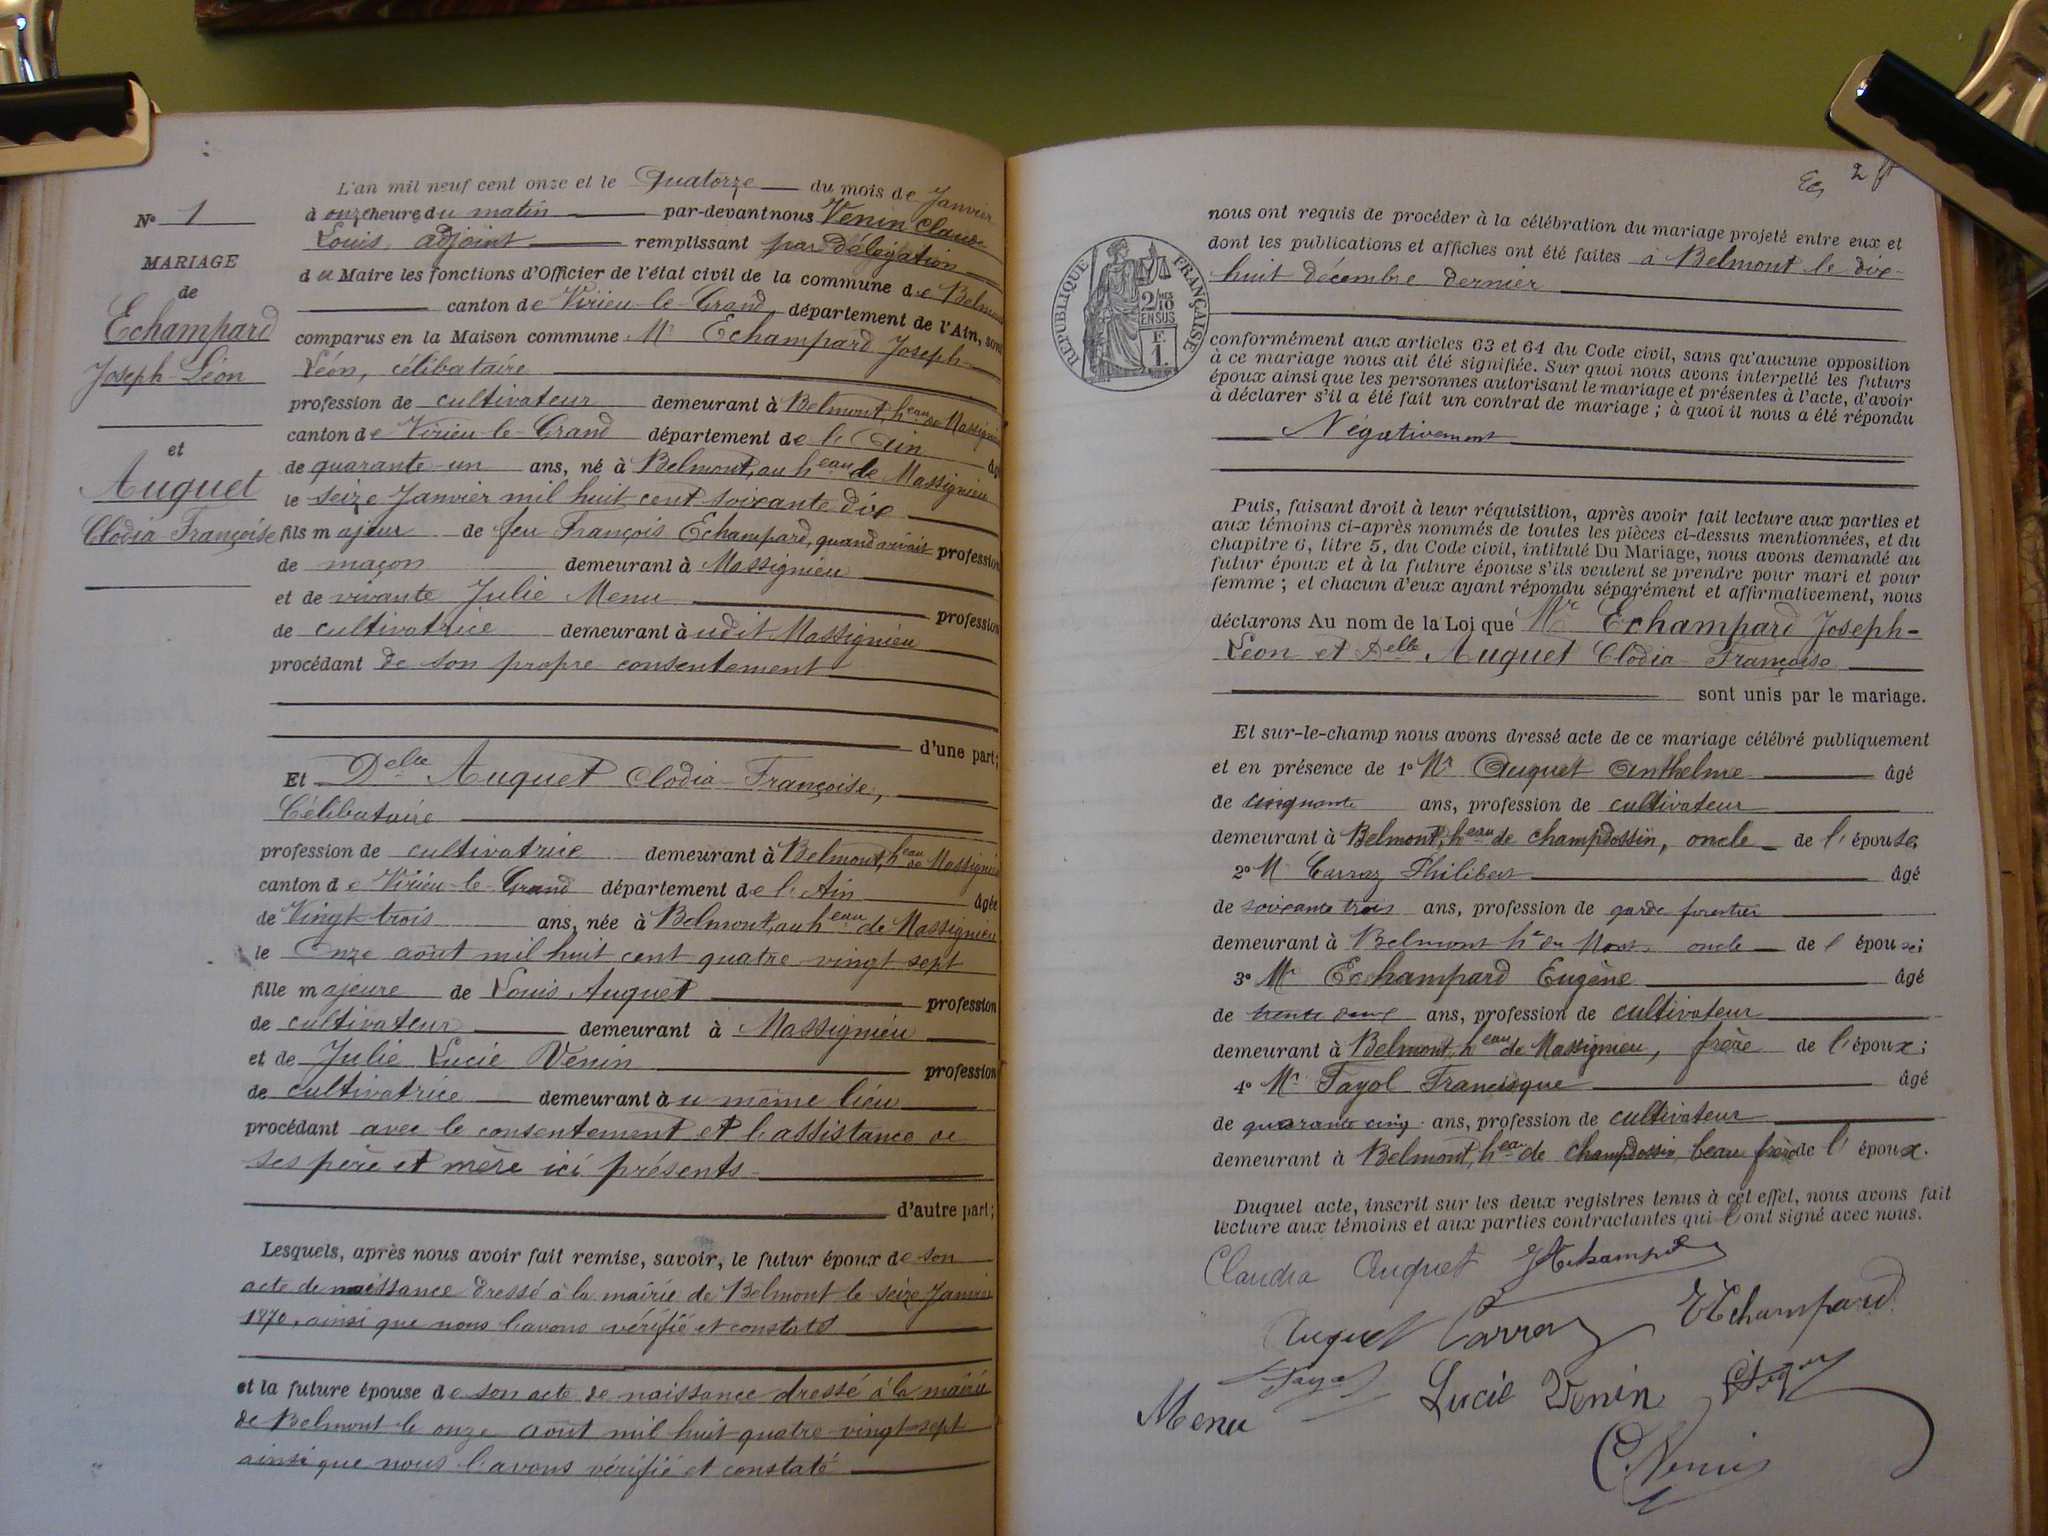 N° 1
MARIAGE
de
Echampard
Joseph-Léon
et
Auguet
Clodia-Françoise
L'an mil neuf cent onze et le Quatorze du mois de Janvier
à onze heures du matin par-devant nous Venin Claude
Louis, adjoint remplissant par délégation
du Maire les fonctions d'Officier de l'état civil de la commune de Belmont
canton de Virieu-le-Grand, département de l'Ain, sont
comparus en la Maison commune Mr Echampard Joseph-
Léon, célibataire
profession de cultivateur demeurant à Belmont, heau de Massignieu
canton de Virieu-le-Grand département de l'Ain âgé
de quarante-un ans, né à Belmont, au heau de Massignieu
le seize Janvier mil huit cent soixante dix
fils majeur de feu François Echampard, quand vivait profession
de maçon demeurant à Massignieu
et de vivante Julie Menu profession
de cultivatrice demeurant à udit Massignieu
procédant de son propre consentement
d'une part;
Et Delle Auguet Clodia-Françoise,
Célibataire
profession de cultivatrice demeurant à Belmont, heau de Massignieu
canton de Virieu-le-Grand département de l'Ain âgée
de Vingt-trois ans, née à Belmont, au heau de Massignieu
le Onze août mil huit cent quatre-vingt sept
fille majeure de Louis Auguet profession
de cultivateur demeurant à Massignieu
et de Julie Lucie Venin profession
de cultivatrice demeurant à u même lieu
procédant avec le consentement et l'assistance de
ses père et mère ici présents
d'autre part;
Lesquels, après nous avoir fait remise, savoir, le futur époux de son
acte de naissance dressé à la mairie de Belmont le seize Janvier
1870, ainsi que nous l'avons vérifié et constaté
et la future épouse de son acte de naissance dressé à la mairie
de Belmont le onze août mil huit quatre-vingt-sept
ainsi que nous l'avons vérifié et constaté
2
nous ont requis de procéder à la célébration du mariage projeté entre eux et
dont les publications et affiches ont été faites à Belmont le dix-
huit décembre dernier
RÉPUBLIQUE FRANÇAISE
2/10
EN SUS
F.
1.
conformément aux articles 63 et 64 du Code civil, sans qu'aucune opposition
à ce mariage nous ait été signifiée. Sur quoi nous avons interpellé les futurs
époux ainsi que les personnes autorisant le mariage et présentes à l'acte, d'avoir
à déclarer s'il a été fait un contrat de mariage; à quoi il nous a été répondu
Négativement
Puis, faisant droit à leur réquisition, après avoir fait lecture aux parties et
aux témoins ci-après nommés de toutes les pièces ci-dessus mentionnées, et du
chapitre 6, titre 5, du Code civil, intitulé Du Mariage, nous avons demandé au
futur époux et à la future épouse s'ils veulent se prendre pour mari et pour
femme; et chacun d'eux ayant répondu séparément et affirmativement, nous
déclarons Au nom de la Loi que Mr Echampard Joseph-
Léon et Delle Auguet Clodia-Françoise
sont unis par le mariage.
Et sur-le-champ nous avons dressé acte de ce mariage célébré publiquement
et en présence de 1° Mr Auguet Anthelme âgé
de cinquante ans, profession de cultivateur
demeurant à Belmont, heau de champdossin, oncle de l'épouse;
2° M Carraz Philibert âgé
de soixante trois ans, profession de garde forestier
demeurant à Belmont oncle de l'épouse;
3° Mr Echampard Eugène âgé
de trente deux ans, profession de cultivateur
demeurant à Belmont, heau de Massignieu, frère de l'époux;
4° Mr Fayol Francisque âgé
de quarante cinq ans, profession de cultivateur
demeurant à Belmont, heau de champdossin, beau frère de l'époux.
Duquel acte, inscrit sur les deux registres tenus à cet effet, nous avons fait
lecture aux témoins et aux parties contractantes qui l'ont signé avec nous.
Claudia Auguet
Auguet Carraz E Echampard
Fayol
Menu Lucie Venin
C. Venin